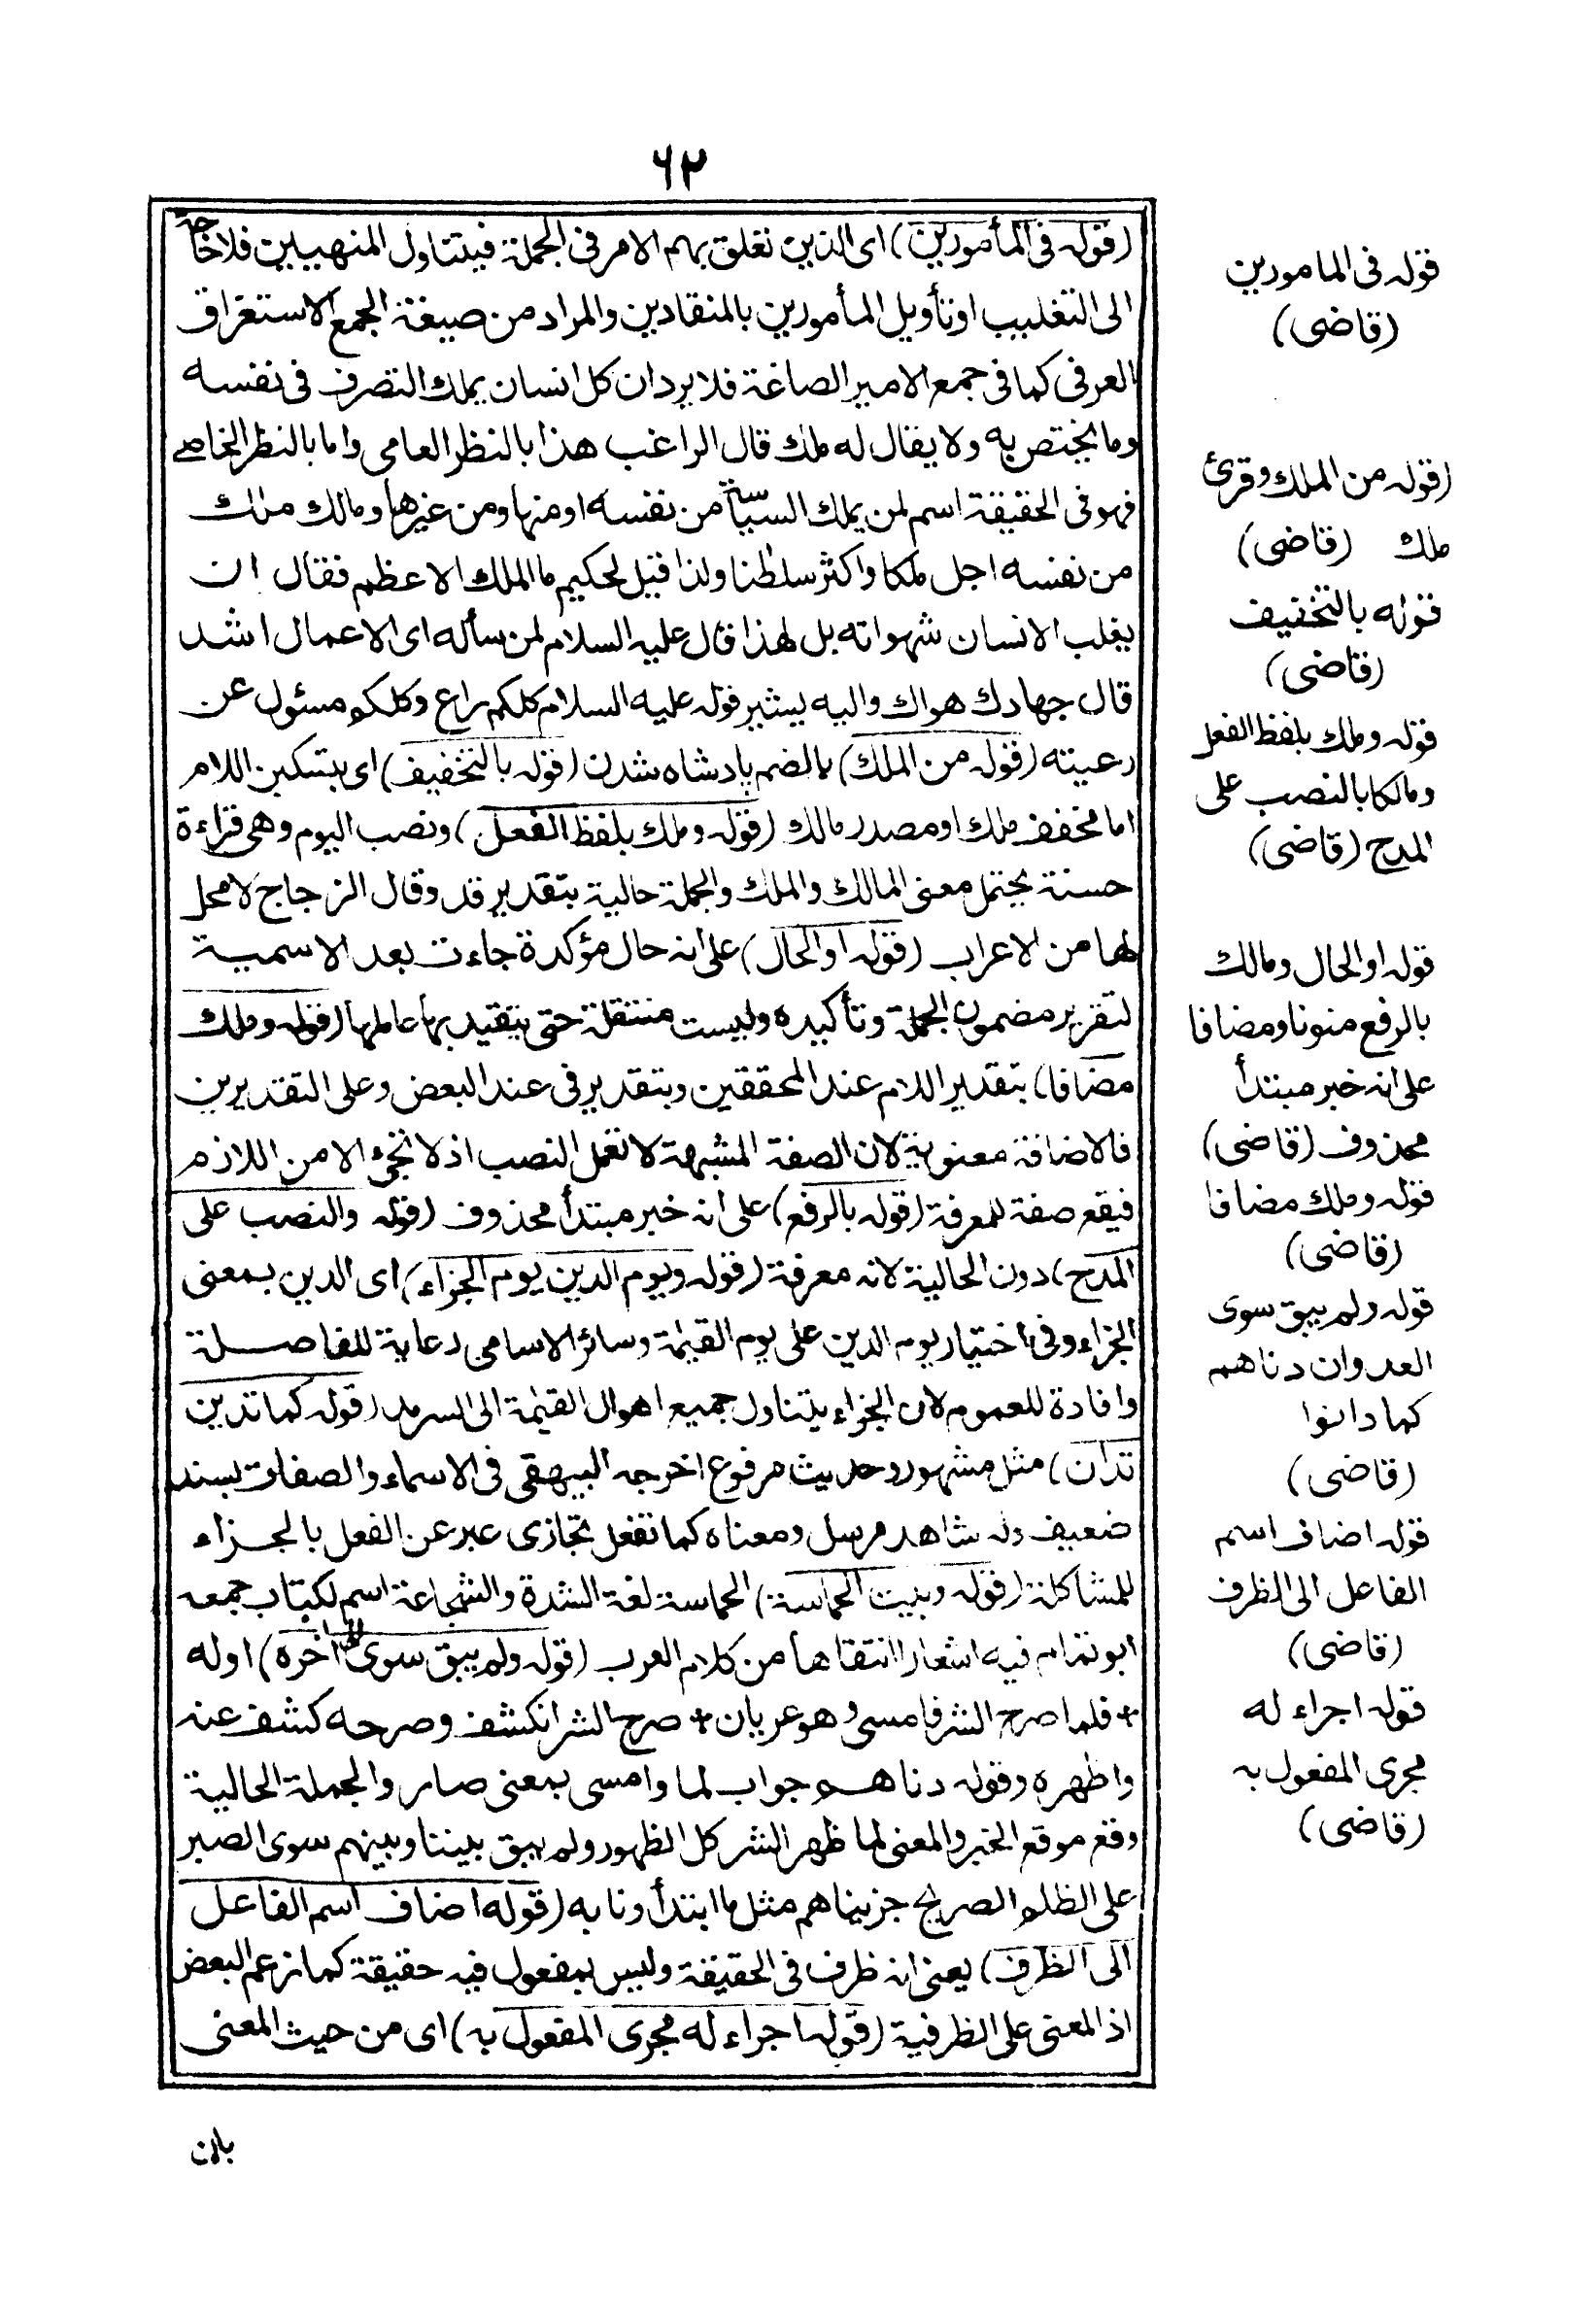 ٦٢
(قوله فى المأمورين) اى الذين تعلق بهم الامر فى الجملة فيتناول المنهيين فلا حاجة
الى التغليب او تأويل المأمورين بالمنقادين والمراد من صيغة الجمع الاستغراق
العرفى كما فى جمع الامير الصاغة فلا يرد ان كل انسان يملك التصرف فى نفسه
وما يختص به ولا يقال له ملك قال الراغب هذا بالنظر العامى واما بالنظر الخاصى
فهو فى الحقيقة اسم لمن يملك السياسة من نفسه او منها ومن غيرها ومالك ملك
من نفسه اجل ملكا واكثر سلطنا ولذا قيل لحكيم ما الملك الاعظم فقال ان
يغلب الانسان شهواته بل لهذا قال عليه السلام لمن سأله اى الاعمال اشد
قال جهادك هواك واليه يشير قوله عليه السلام كلكم راع وكلكم مسئول عن
رعيته (قوله من الملك) بالضم پادشاه شدن (قوله بالتخفيف) اى بتسكين اللام
اما مخفف ملك او مصدر مالك (قوله وملك بلفظ الفعل) ونصب اليوم وهى قراءة
حسنة يحتمل معنى المالك والملك والجملة حالية بتقدير قد وقال الزجاج لا محل
لها من الاعراب (قوله او الحال) على انه حال مؤكدة جاءت بعد الاسمية
لتقرير مضمون الجملة وتأكيده وليست منتقلة حتى يتقيد بها عاملها (قوله وملك
مضافا) بتقدير اللام عند المحققين وبتقدير فى عند البعض وعلى التقديرين
فالاضافة معنوية لان الصفة المشبهة لا تعمل النصب اذ لا تجئ الا من اللازم
فيقع صفة للمعرفة (قوله بالرفع) على انه خبر مبتدأ محذوف (قوله والنصب على
المدح) دون الحالية لانه معرفة (قوله ويوم الدين يوم الجزاء) اى الدين بمعنى
الجزاء وفى اختيار يوم الدين على يوم القيمة وسائر الاسامى رعاية للفاصلة
وافادة للعموم لان الجزاء يتناول جميع اهوال القيمة الى السرمد (قوله كما تدين
تدان) مثل مشهور وحديث مرفوع اخرجه البيهقى فى الاسماء والصفات بسند
ضعيف وله شاهد مرسل ومعناه كما تفعل تجازى عبر عن الفعل بالجزاء
للمشاكلة (قوله وبيت الحماسة) الحماسة لغة الشدة والشجاعة اسم لكتاب جمعه
ابو تمام فيه اشعارا انتقاها من كلام العرب (قوله ولم يبق سوى الى آخره) اوله
+ فلما صرح الشر فامسى وهو عريان + صرح الشر انكشف وصرحه كشف عنه
واظهره وقوله دناهم جواب لما وامسى بمعنى صار والجملة الحالية
وقع موقع الخبر والمعنى لما ظهر الشر كل الظهور ولم يبق بيننا وبينهم سوى الصبر
على الظلم الصريح جزيناهم مثل ما ابتدأونا به (قوله اضاف اسم الفاعل
الى الظرف) يعنى انه ظرف فى الحقيقة وليس بمفعول فيه حقيقة كما زعم البعض
اذ المعنى على الظرفية (قوله اجراء له مجرى المفعول به) اى من حيث المعنى
بان
قوله فى المامورين
(قاضى)
(قوله من الملك وقرئ
ملك (قاضى)
قوله بالتخفيف
(قاضى)
قوله وملك بلفظ الفعل
ومالكا بالنصب على
المدح (قاضى)
قوله او الحال ومالك
بالرفع منونا ومضافا
على انه خبر مبتدأ
محذوف (قاضى)
قوله وملك مضافا
(قاضى)
قوله ولم يبق سوى
العدوان دناهم
كما دانوا
(قاضى)
قوله اضاف اسم
الفاعل الى الظرف
(قاضى)
قوله اجراء له
مجرى المفعول به
(قاضى)